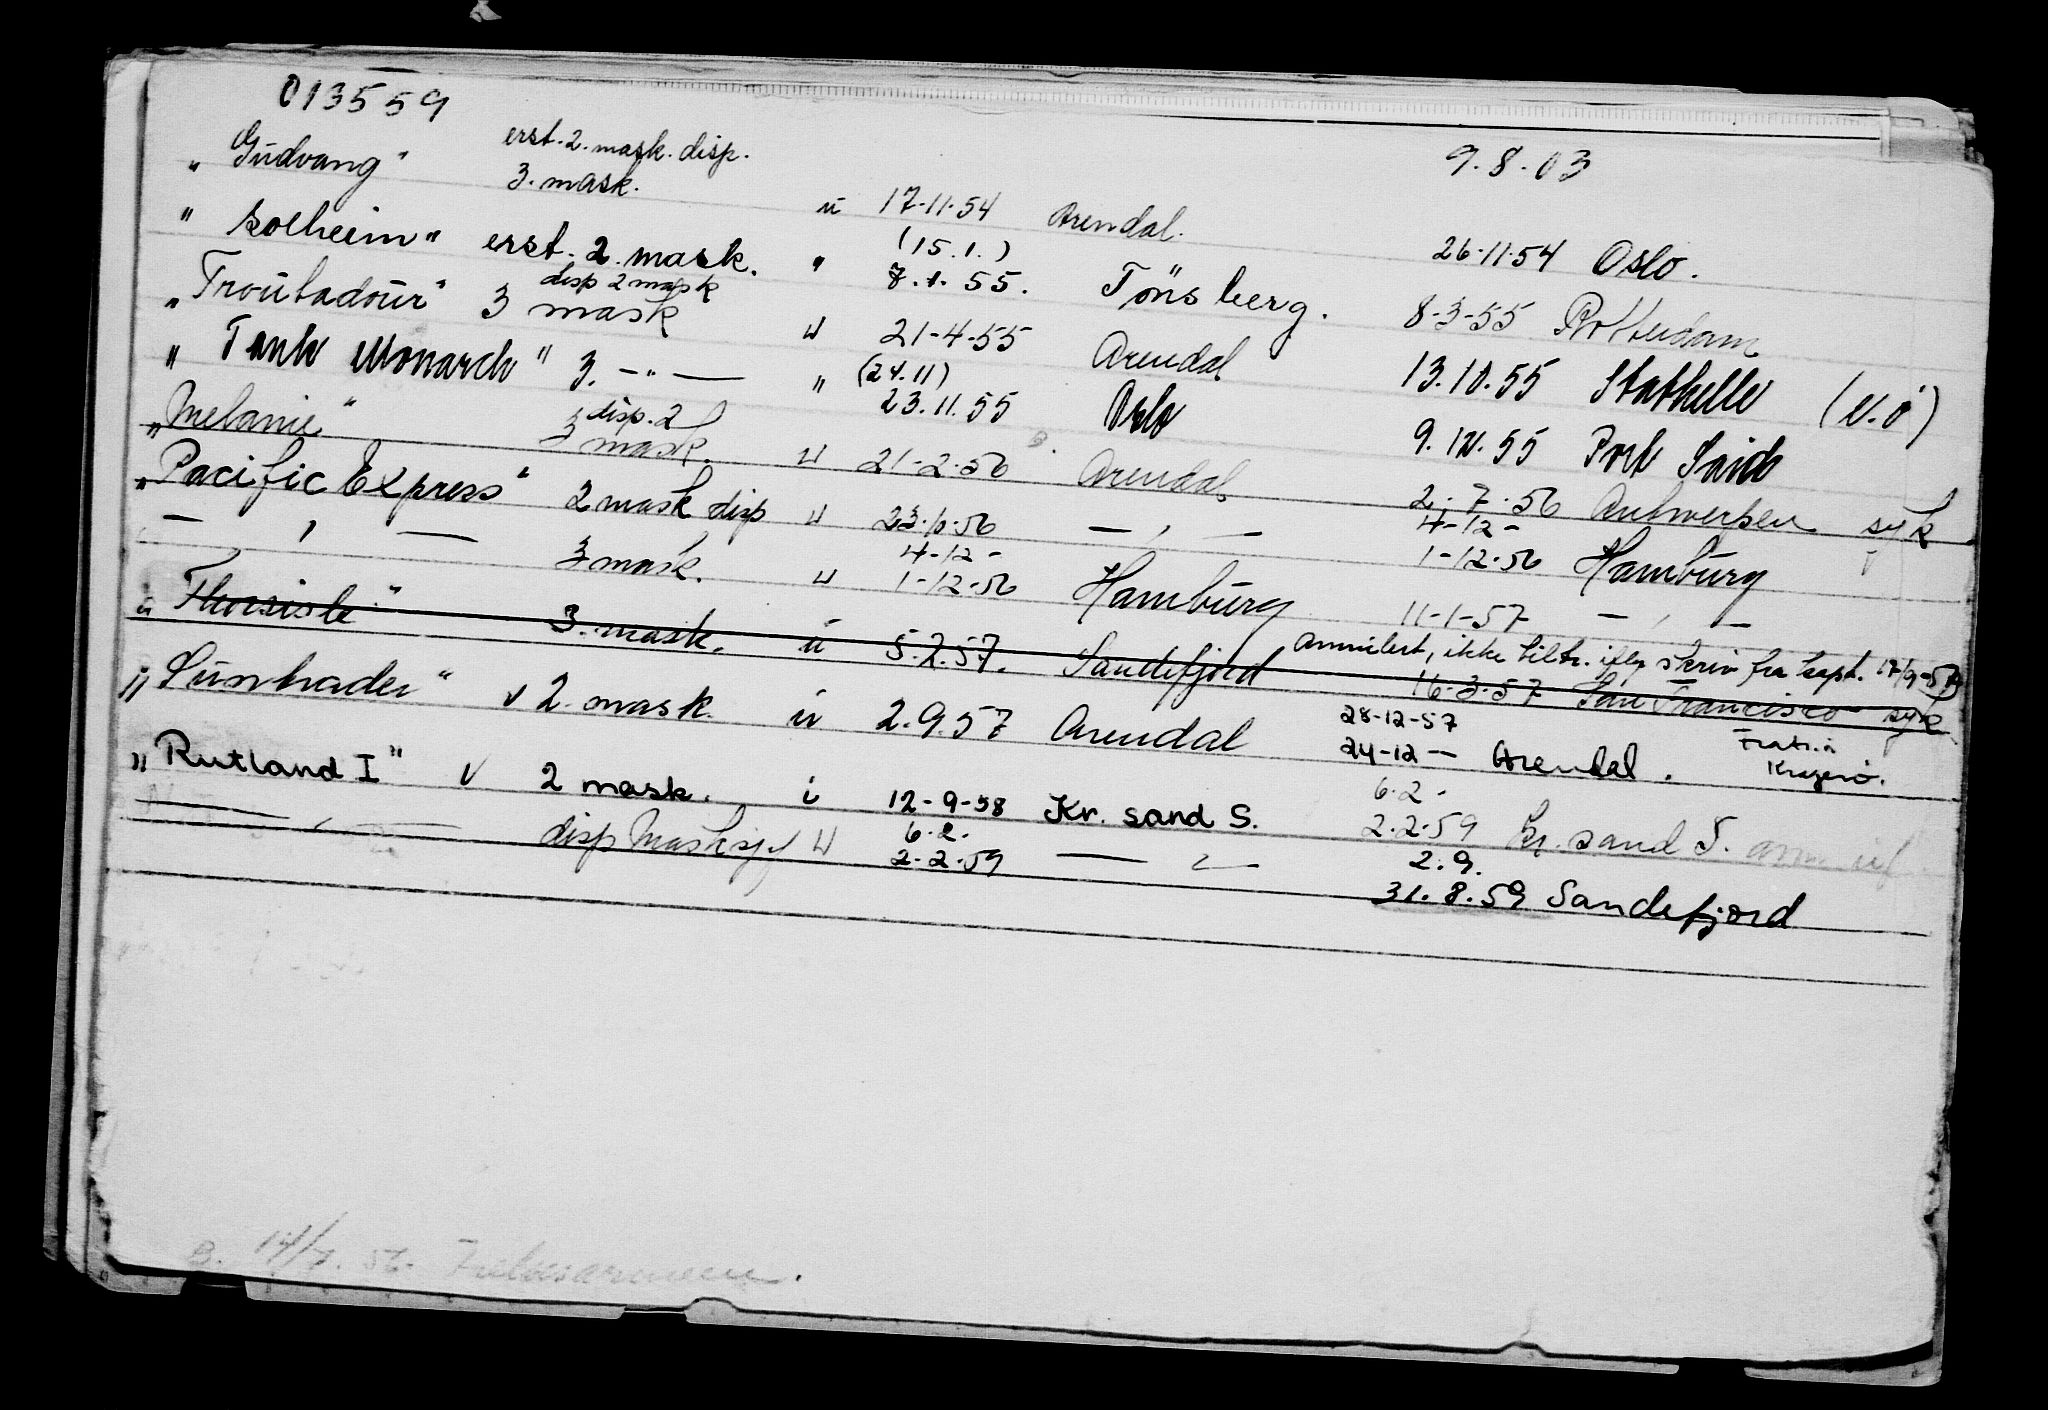 013559
9.8.03
erst. 2. mask. disp.
"Gudvang" 3. mask. u 17-11-54 Arendal. 26-11-54 Oslo.
(15.1.)
"Solheim" erst. 2. mask. " 7.1.55. Tönsberg. 8-3-55 Rotterdam
disp 2 mask
"Troubadour" 3 mask u 21-4-55 Arendal 13.10.55 Stathelle (v.ö)
(24.11)
"Tank Monarch" 3. -"- " 23.11.55 Oslo 9.12.55 Port Said
disp. 2
"Melanie" 3 mask. u 21-2-56 Arendal 2.7.56 Antwerpen syk
4-12-
"Pacific Express" 2 mask disp u 23.10.56 — " — 1-12-56 Hamburg
4-12-
— " — 3 mask. u 1-12-56 Hamburg 11-1-57 — " —
annulert, ikke tiltr. ifлg skriv fra kapt. 17/9-57
"Thorsisle" 3. mask. u 5.2.57. Sandefjord 16-3-57 San Francisco syk
28-12-57
"Suntrader" v 2. mask. u 2.9.57 Arendal 24-12— Arendal. Fratr. i Kragerø.
6.2-
"Rutland I" v 2 mask. i 12-9-58 Kr. sand S. 2.2.59 Kr. sand S.
6.2. 2.9.
— " — disp Masksjef u 2-2-59 — " — 31.8.59 Sandefjord
B. 14/7. 56. Frelsesarmeen.